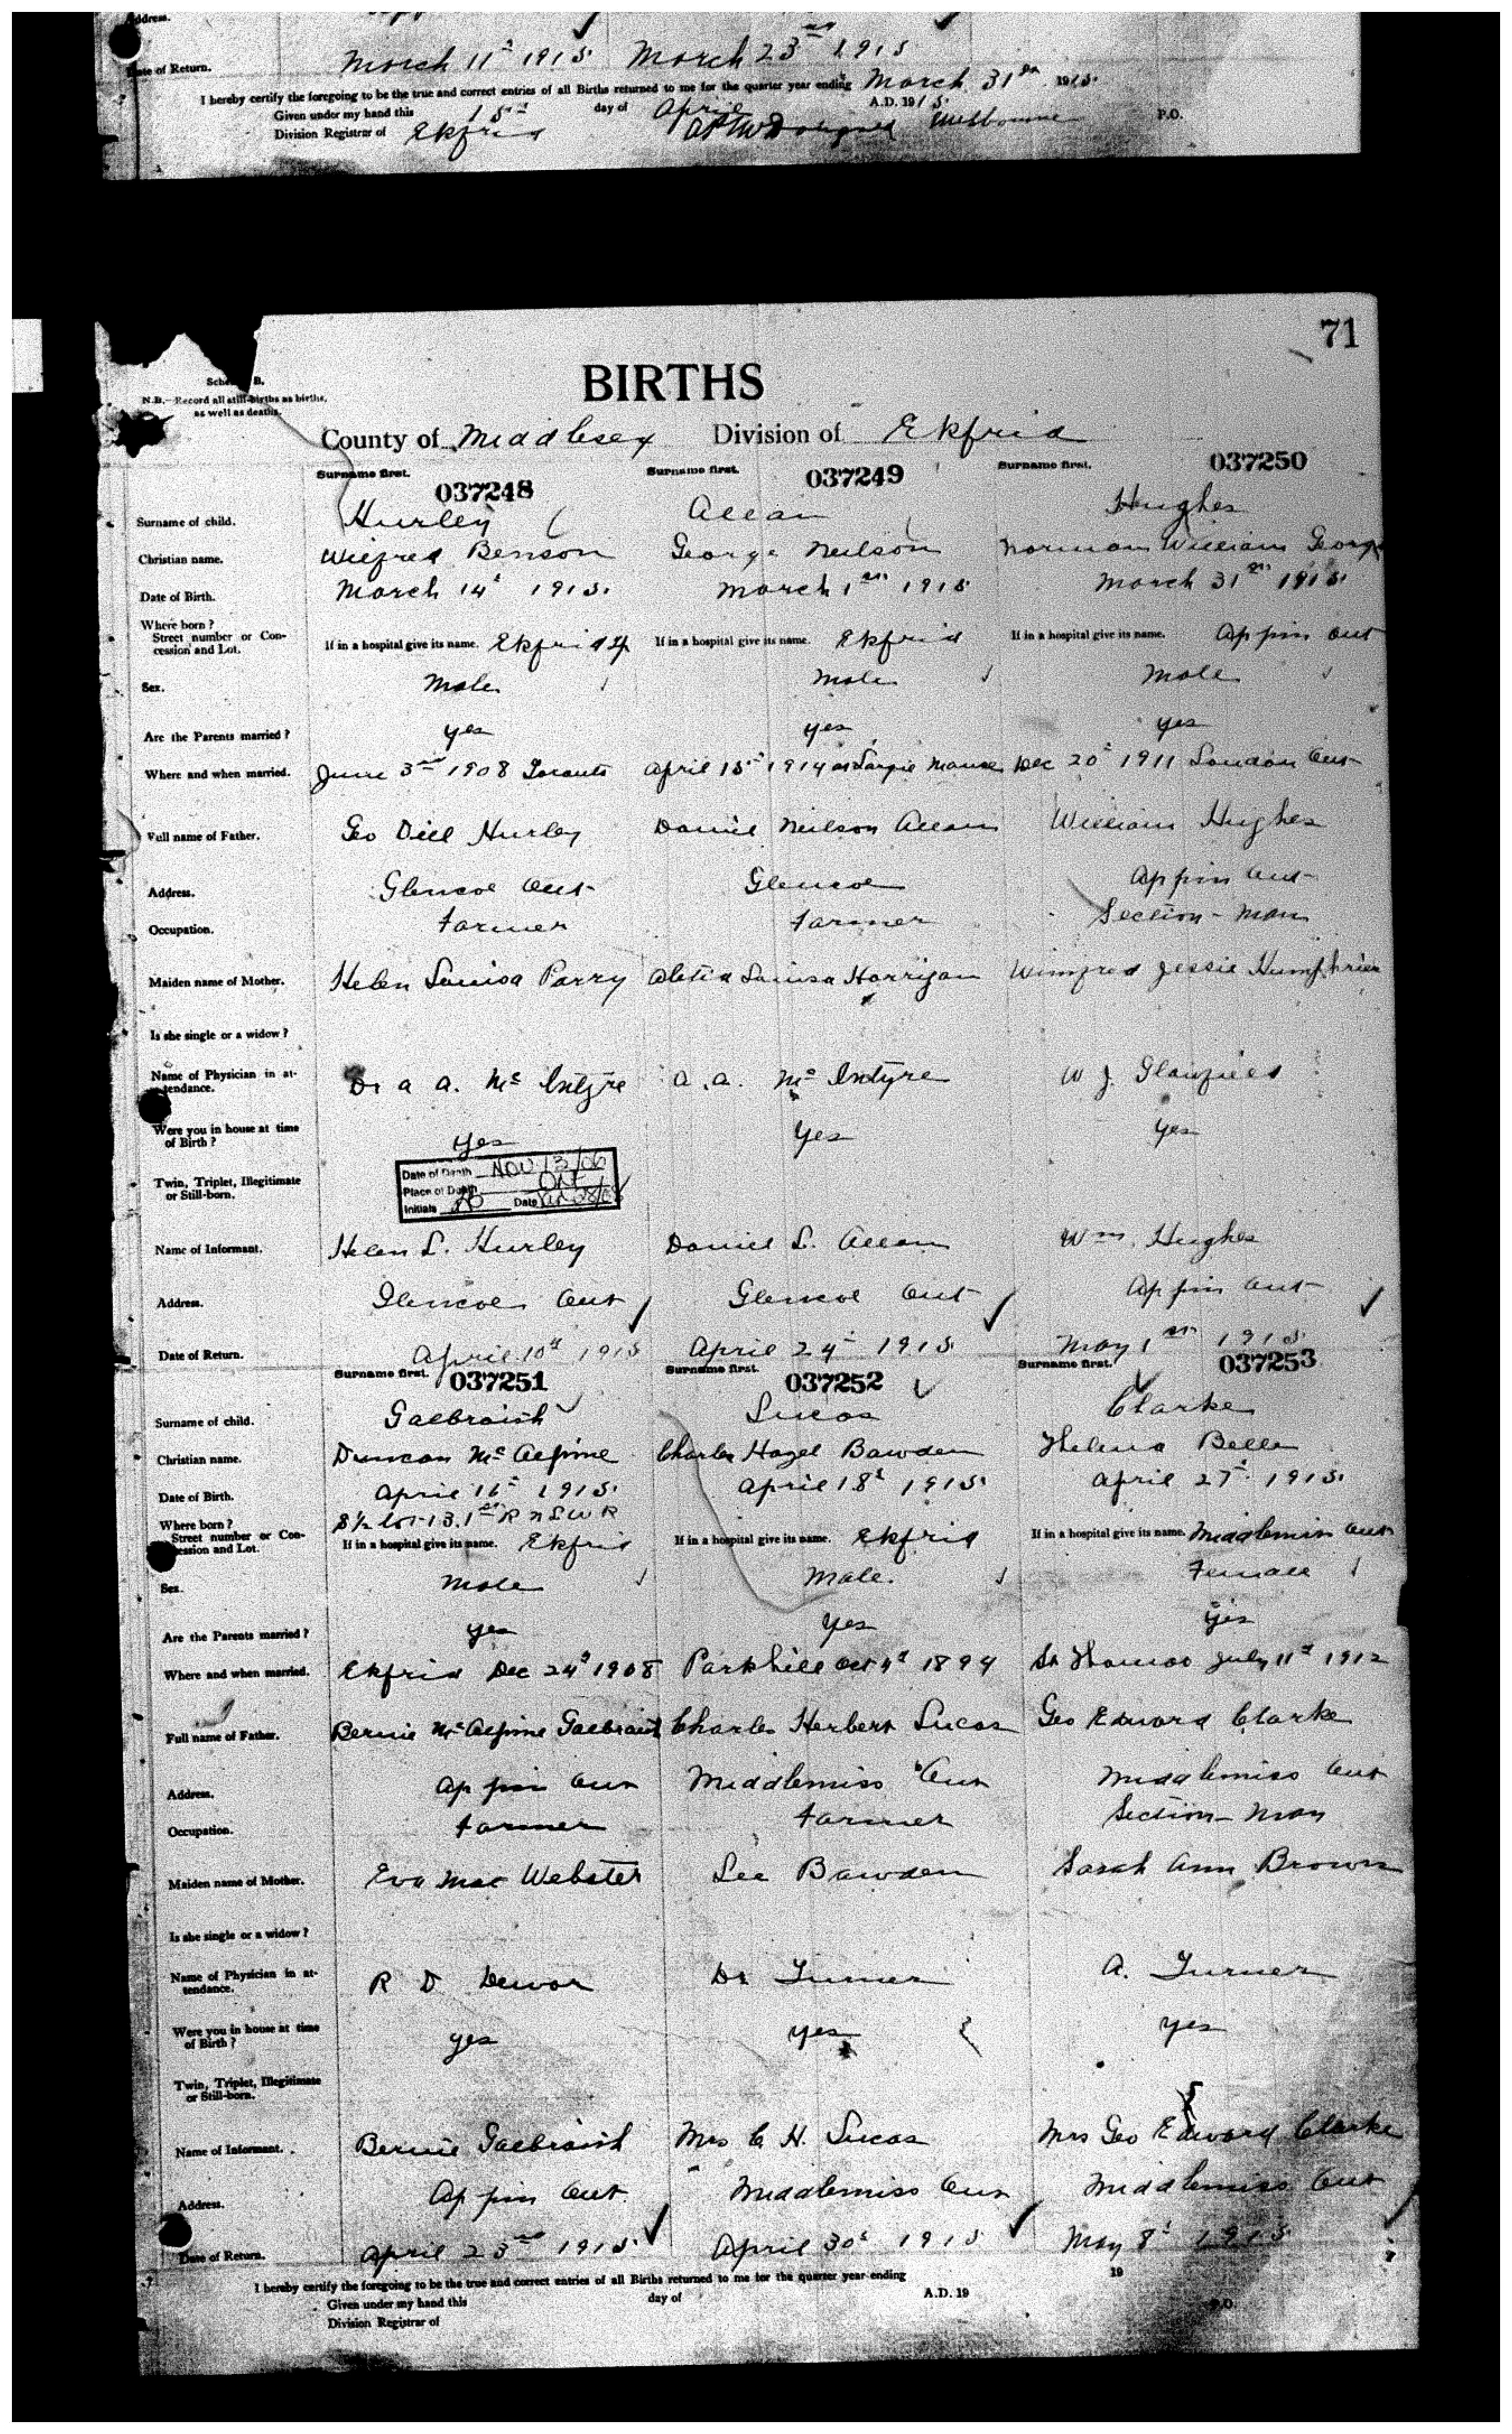 Address.
Date of Return. March 11th 1915. March 23rd 1915
I hereby certify the foregoing to be the true and correct entries of all Births returned to me for the quarter year ending March 31st 1915.
Given under my hand this 15th day of April A.D. 1915.
Division Registrar of Ekfrid Melbourne P.O.
71
Schedule B.
N.B.—Record all still-births as births, as well as deaths.
BIRTHS
County of Middlesex Division of Ekfrid
Surname first. 037248 Surname first. 037249 Surname first. 037250
Surname of child. Hurley Allan Hughes
Christian name. Wilfred Benson George Neilson Norman William George
Date of Birth. March 14th 1915. March 1st 1915 March 31st 1915.
Where born?
Street number or Concession and Lot. If in a hospital give its name. Ekfrid Tp If in a hospital give its name. Ekfrid If in a hospital give its name. Appin Ont
Sex. Male Male Male
Are the Parents married? yes yes yes
Where and when married. June 3rd 1908 Toronto April 15th 1914 Manse Dec 20th 1911 London Ont
Full name of Father. Geo Dell Hurley Daniel Neilson Allan William Hughes
Address. Glencoe Ont Glencoe Appin Ont
Occupation. Farmer Farmer Section-Man
Maiden name of Mother. Helen Louisa Parry Louisa Harrigan Winifred Jessie Humphries
Is she single or a widow?
Name of Physician in attendance. Dr A A. McIntyre A. A. McIntyre W J.
Were you in house at time of Birth? yes yes yes
Twin, Triplet, Illegitimate or Still-born.
Date of Death NOV 13/06
Place of Death ONT
Initials Date
Name of Informant. Helen L. Hurley Daniel L. Allan Wm. Hughes
Address. Glencoe Ont Glencoe Ont Appin Ont
Date of Return. April 10th 1915 April 24th 1915 May 1st 1915
Surname first. 037251 Surname first. 037252 Surname first. 037253
Surname of child. Galbraith Lucas Clarke
Christian name. Duncan McAlpine Charles Hazel Bawden Thelma Belle
Date of Birth. April 16th 1915. April 18th 1915. April 27th 1915.
Where born? S½ Lot 13. 1st R N L W R
Street number or Concession and Lot. If in a hospital give its name. Ekfrid If in a hospital give its name. Ekfrid If in a hospital give its name. Middlemiss Ont
Sex. Male Male. Female
Are the Parents married? yes Yes yes
Where and when married. Ekfrid Dec 24th 1908 Parkhill Oct 4th 1894 St Thomas July 11th 1912
Full name of Father. Bernie McAlpine Galbraith Charles Herbert Lucas Geo Edward Clarke
Address. Appin Ont Middlemiss Ont Middlemiss Ont
Occupation. Farmer Farmer Section-Man
Maiden name of Mother. Eva Mae Webster Lee Bawden Sarah Ann Brown
Is she single or a widow?
Name of Physician in attendance. R D Dewar Dr Turner A. Turner
Were you in house at time of Birth? yes yes yes
Twin, Triplet, Illegitimate or Still-born.
Name of Informant. Bernie Galbraith Mrs C H. Lucas Mrs Geo Edward Clarke
Address. Appin Ont. Middlemiss Ont Middlemiss Ont
Date of Return. April 23rd 1915. April 30th 1915 May 8th 1915
I hereby certify the foregoing to be the true and correct entries of all Births returned to me for the quarter year ending 19
Given under my hand this day of A.D. 19
Division Registrar of P.O.